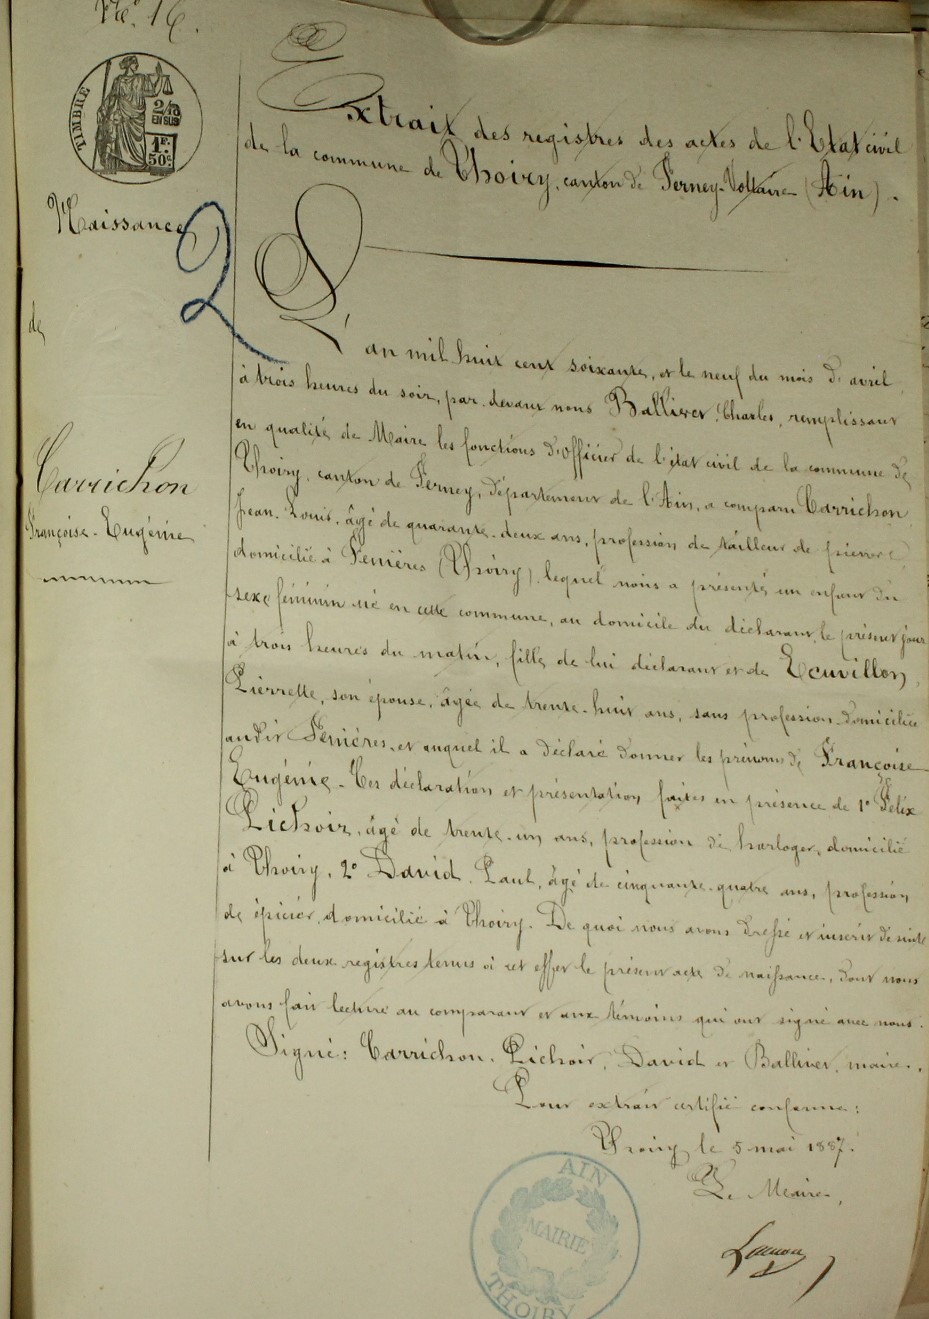 N° 16.
TIMBRE
2/10
EN SUS
1F.
50c.
Extrait des registres des actes de l'Etat civil
de la commune de Thoiry, canton de Ferney-Voltaire (Ain).
Naissance
2
de
Carrichon
Françoise-Eugénie
L'an mil huit cent soixante, et le neuf du mois d'avril
à trois heures du soir, par devant nous Ballivet Charles, remplissant
en qualité de Maire les fonctions d'officier de l'état civil de la commune de
Thoiry, canton de Ferney, département de l'Ain, a comparu Carrichon
Jean-Louis, âgé de quarante-deux ans, profession de tailleur de pierre
domicilié à Fenières (Thoiry) lequel nous a présenté un enfant du
sexe féminin né en cette commune, au domicile du déclarant, le présent jour
à trois heures du matin, fille de lui déclarant et de Ecuvillon,
Pierrette, son épouse, âgée de trente-huit ans, sans profession domiciliée
audit Fenières, et auquel il a déclaré donner les prénoms de Françoise
Eugénie. Ces déclaration et présentation faites en présence de 1° Félix
Pichoir, âgé de trente-un ans, profession de horloger, domicilié
à Thoiry, 2° David Paul, âgé de cinquante-quatre ans, profession
de épicier, domicilié à Thoiry. De quoi nous avons dressé et inscrit de suite
sur les deux registres tenus à cet effet le présent acte de naissance, dont nous
avons fait lecture au comparant et aux témoins qui ont signé avec nous.
Signé: Carrichon, Pichoir, David et Ballivet, maire.
Pour extrait certifié conforme:
Thoiry, le 5 mai 1887.
Le Maire,
AIN
MAIRIE
THOIRY